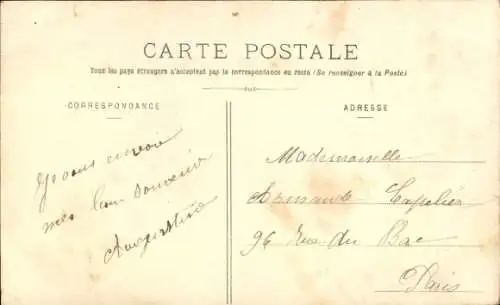 CARTE POSTALE
Tous les pays étrangers n'acceptent pas la correspondance au recto (Se renseigner à la Poste)
CORRESPONDANCE
Je vous envoie
mes bon souvenir
Augustine
ADRESSE
Mademoiselle
Armande Capelier
96 Rue du Bac
Paris